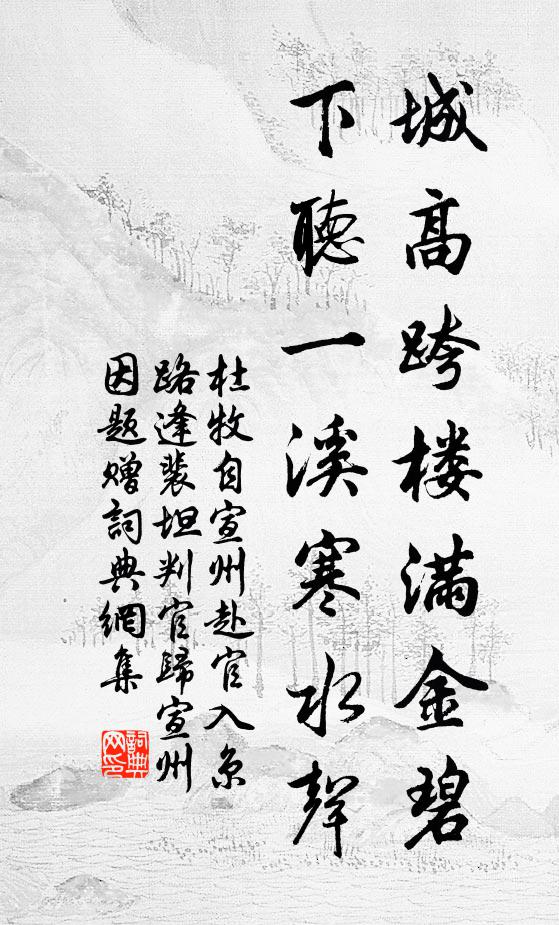 城高跨楼满金碧
下聽一溪寒水聲
杜牧自宣州赴官入京
路逢裴坦判官歸宣州
因题赠詞典網集
詞典
网印